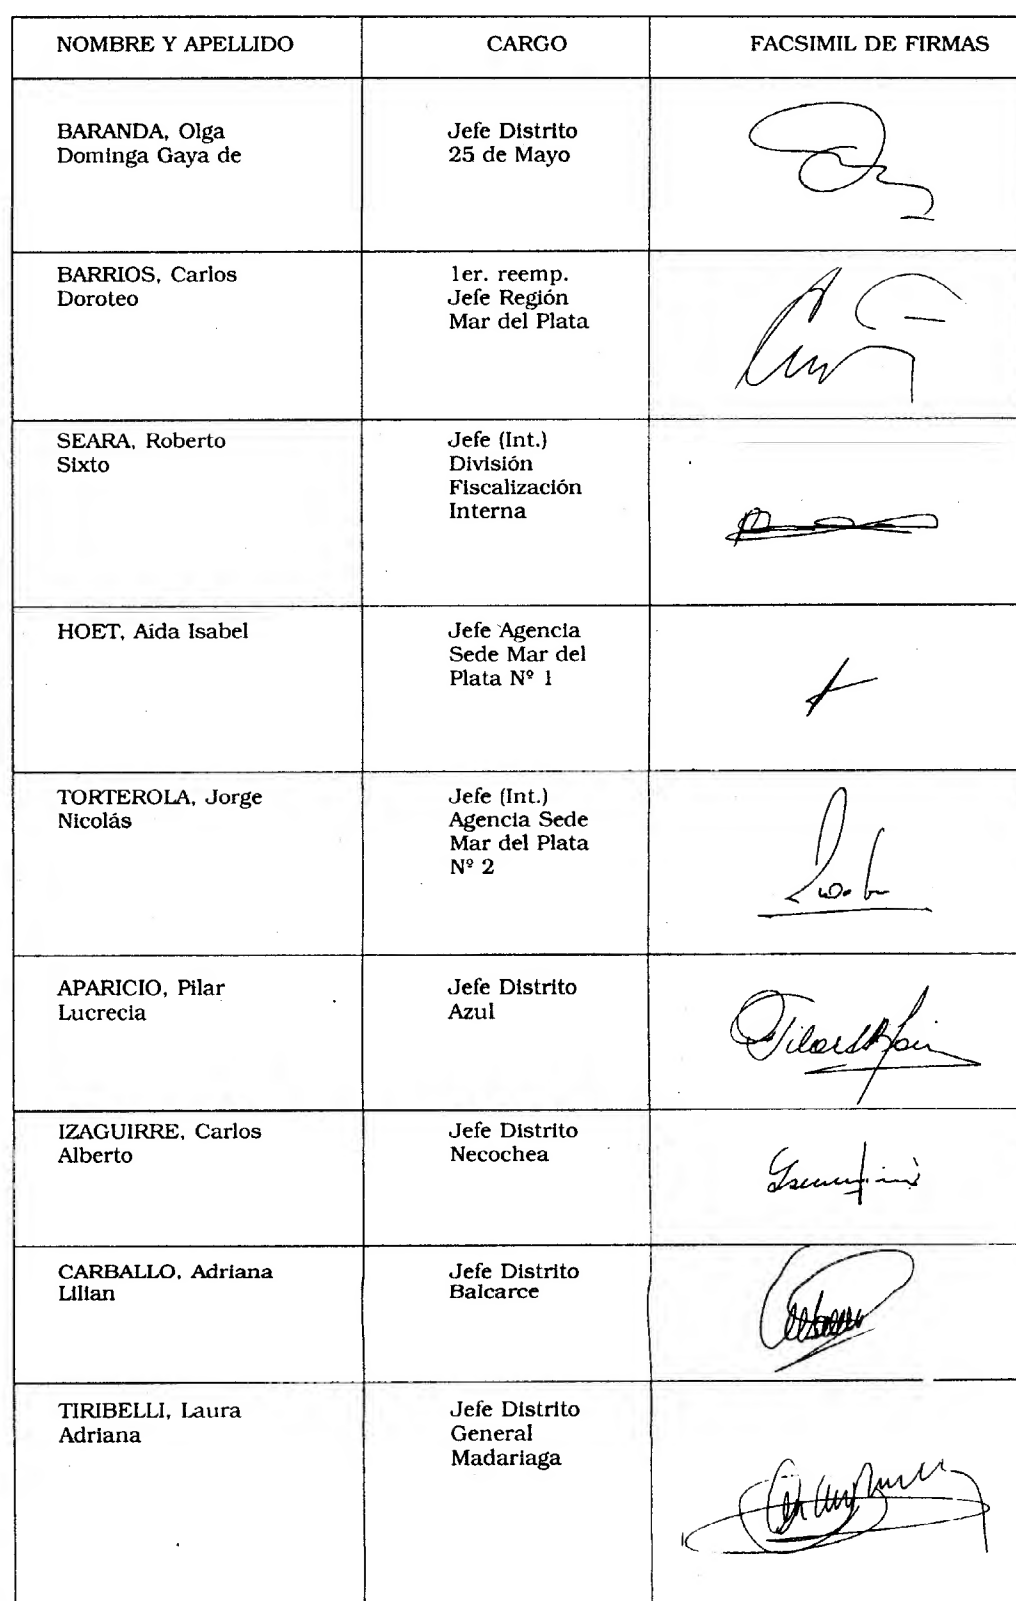 NOMBRE Y APELLIDO CARGO FACSIMIL DE FIRMAS
BARANDA, Olga
Dominga Gaya de
Jefe Distrito
25 de Mayo
BARRIOS, Carlos
Doroteo
1er. reemp.
Jefe Región
Mar del Plata
SEARA, Roberto
Sixto
Jefe (Int.)
División
Fiscalización
Interna
HOET, Aída Isabel
Jefe Agencia
Sede Mar del
Plata Nº 1
TORTEROLA, Jorge
Nicolás
Jefe (Int.)
Agencia Sede
Mar del Plata
Nº 2
APARICIO, Pilar
Lucrecia
Jefe Distrito
Azul
IZAGUIRRE, Carlos
Alberto
Jefe Distrito
Necochea
CARBALLO, Adriana
Lilian
Jefe Distrito
Balcarce
TIRIBELLI, Laura
Adriana
Jefe Distrito
General
Madariaga